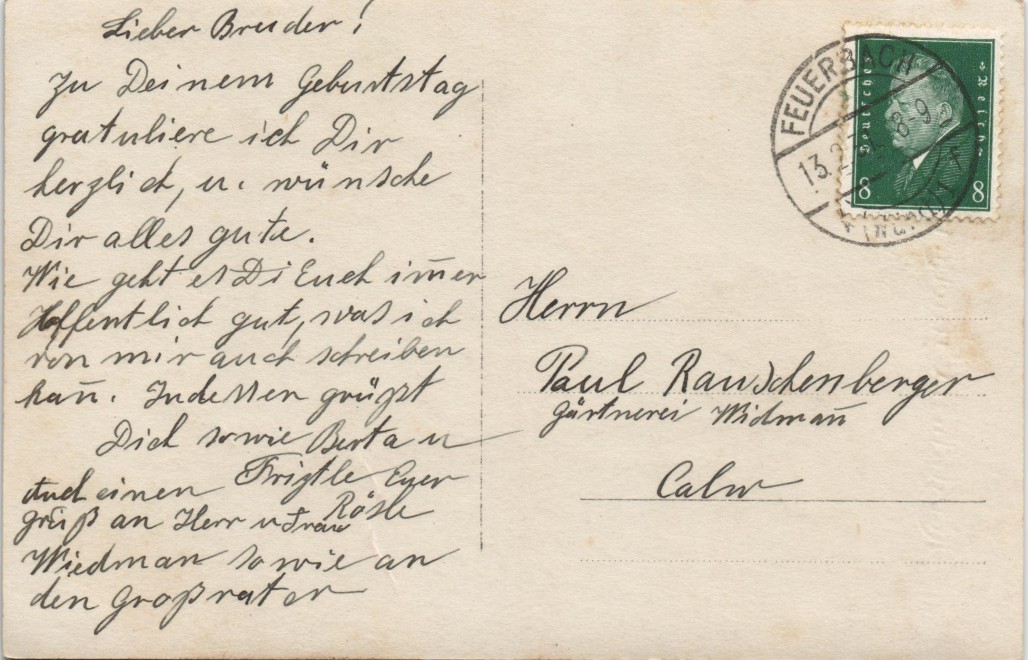 Lieber Bruder!
Zu Deinem Geburtstag
gratuliere ich Dir
herzlich, u. wünsche
Dir alles gute.
Wie geht es Di Euch im̅er
Hoffentlich gut, was ich
von mir auch schreiben
kan̅. Indessen grüßt
Dich sowie Berta u
Fritzle Euer
Rösle
Auch einen
gruß an Herr u Frau
Wiedman sowie an
den Großvater
FEUERBACH
13.2. 8-9
Deutsches Reich
8 8
Herrn
Paul Rauschenberger
Gärtnerei Widman̅
Calw